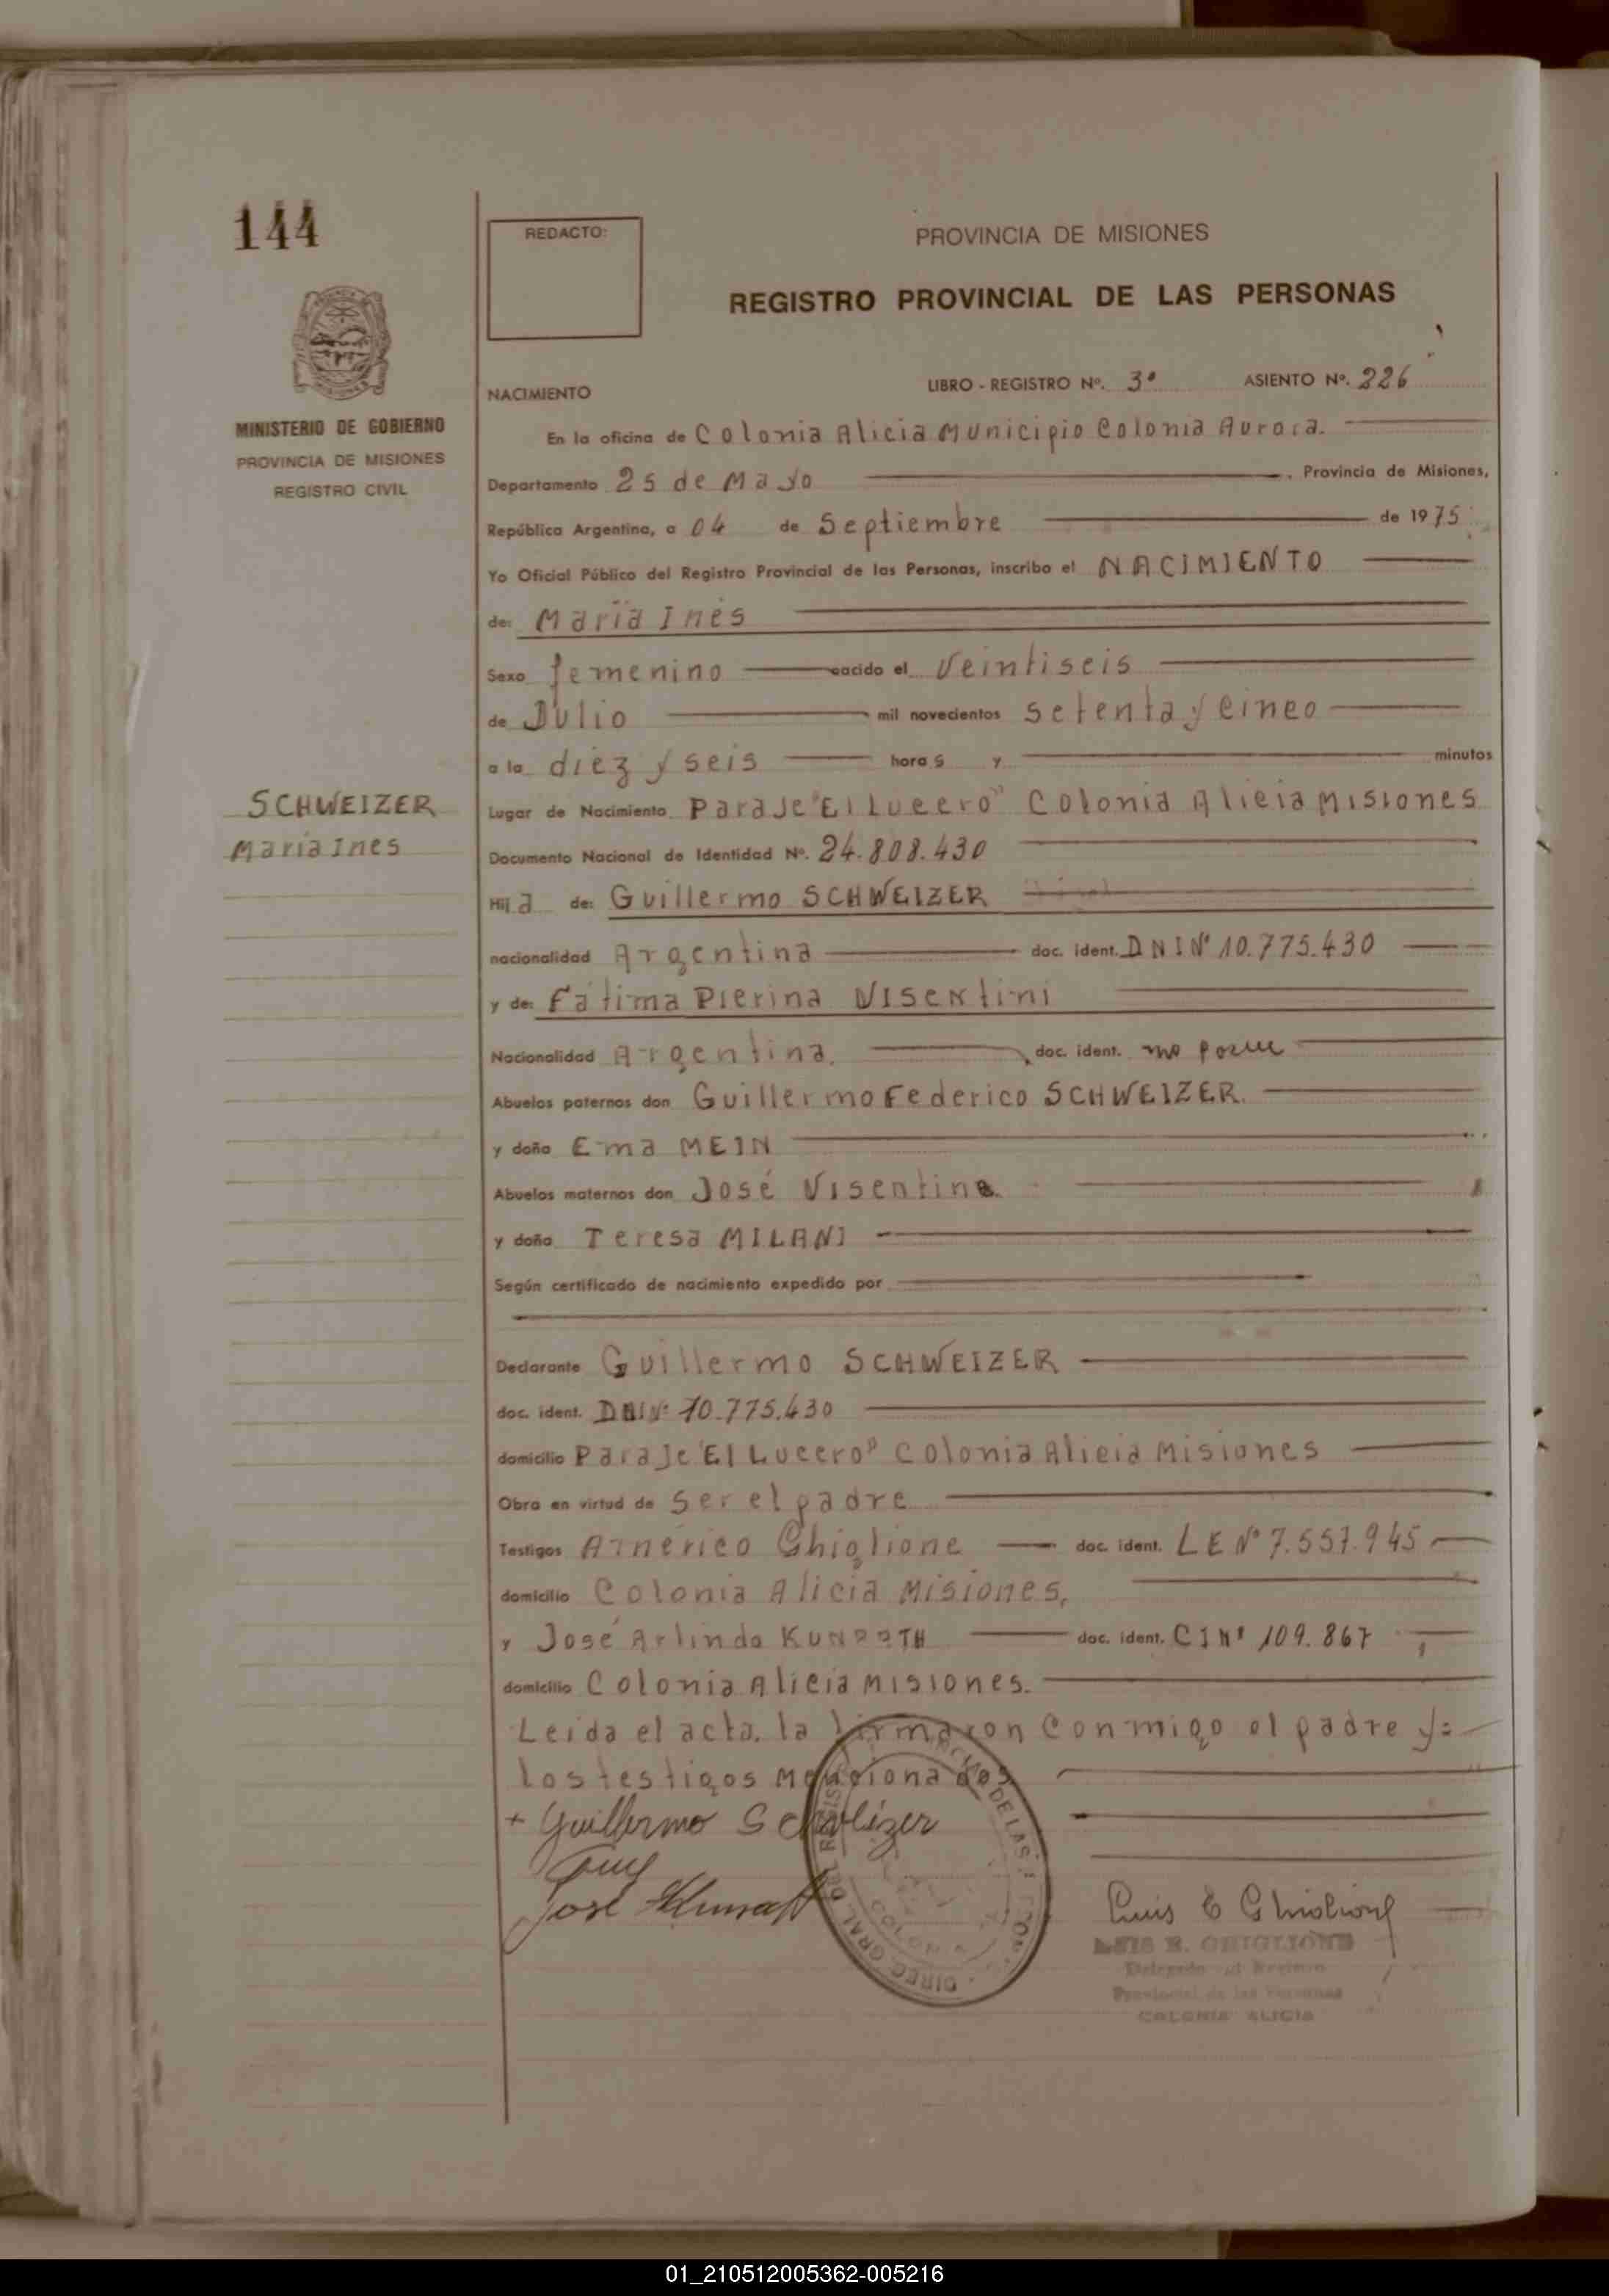 144
REDACTO:
PROVINCIA DE MISIONES
REGISTRO PROVINCIAL DE LAS PERSONAS
MINISTERIO DE GOBIERNO
PROVINCIA DE MISIONES
REGISTRO CIVIL
NACIMIENTO LIBRO - REGISTRO Nº. 3º ASIENTO Nº. 226
En la oficina de Colonia Alicia Municipio Colonia Aurora.
Departamento 25 de Mayo , Provincia de Misiones,
República Argentina, a 04 de Septiembre de 1975
Yo Oficial Público del Registro Provincial de las Personas, inscribo el NACIMIENTO
de: Maria Inés
Sexo femenino nacido el Veintiseis
de Julio mil novecientos setenta y cinco
a la diez y seis horas y minutos
SCHWEIZER
Maria Ines
Lugar de Nacimiento Paraje "El Lucero" Colonia Alicia Misiones
Documento Nacional de Identidad Nº. 24.808.430
Hija de: Guillermo SCHWEIZER
nacionalidad Argentina doc. ident. DNI Nº 10.775.430
y de: Fátima Pierina Visentini
Nacionalidad Argentina. doc. ident. no posee
Abuelos paternos don Guillermo Federico SCHWEIZER.
y doña Ema MEIN
Abuelos maternos don José
y doña Teresa MILANI
Según certificado de nacimiento expedido por
Declarante Guillermo SCHWEIZER
doc. ident. DNI Nº 10.775.430
domicilio Paraje "El Lucero" Colonia Alicia Misiones
Obra en virtud de ser el padre
Testigos Américo Ghiglione doc. ident. LE Nº 7.557.945
domicilio Colonia Alicia Misiones,
y José Arlindo doc. ident. CI Nº 109.867
domicilio Colonia Alicia Misiones.
Leida el acta, la firmaron conmigo el padre y=
los testigos mencionados
+ Guillermo Schweizer
José
Luis E Ghiglione
LUIS E. GHIGLIONE
Delegado del Registro
Provincial de las Personas
COLONIA ALICIA
01_210512005362-005216